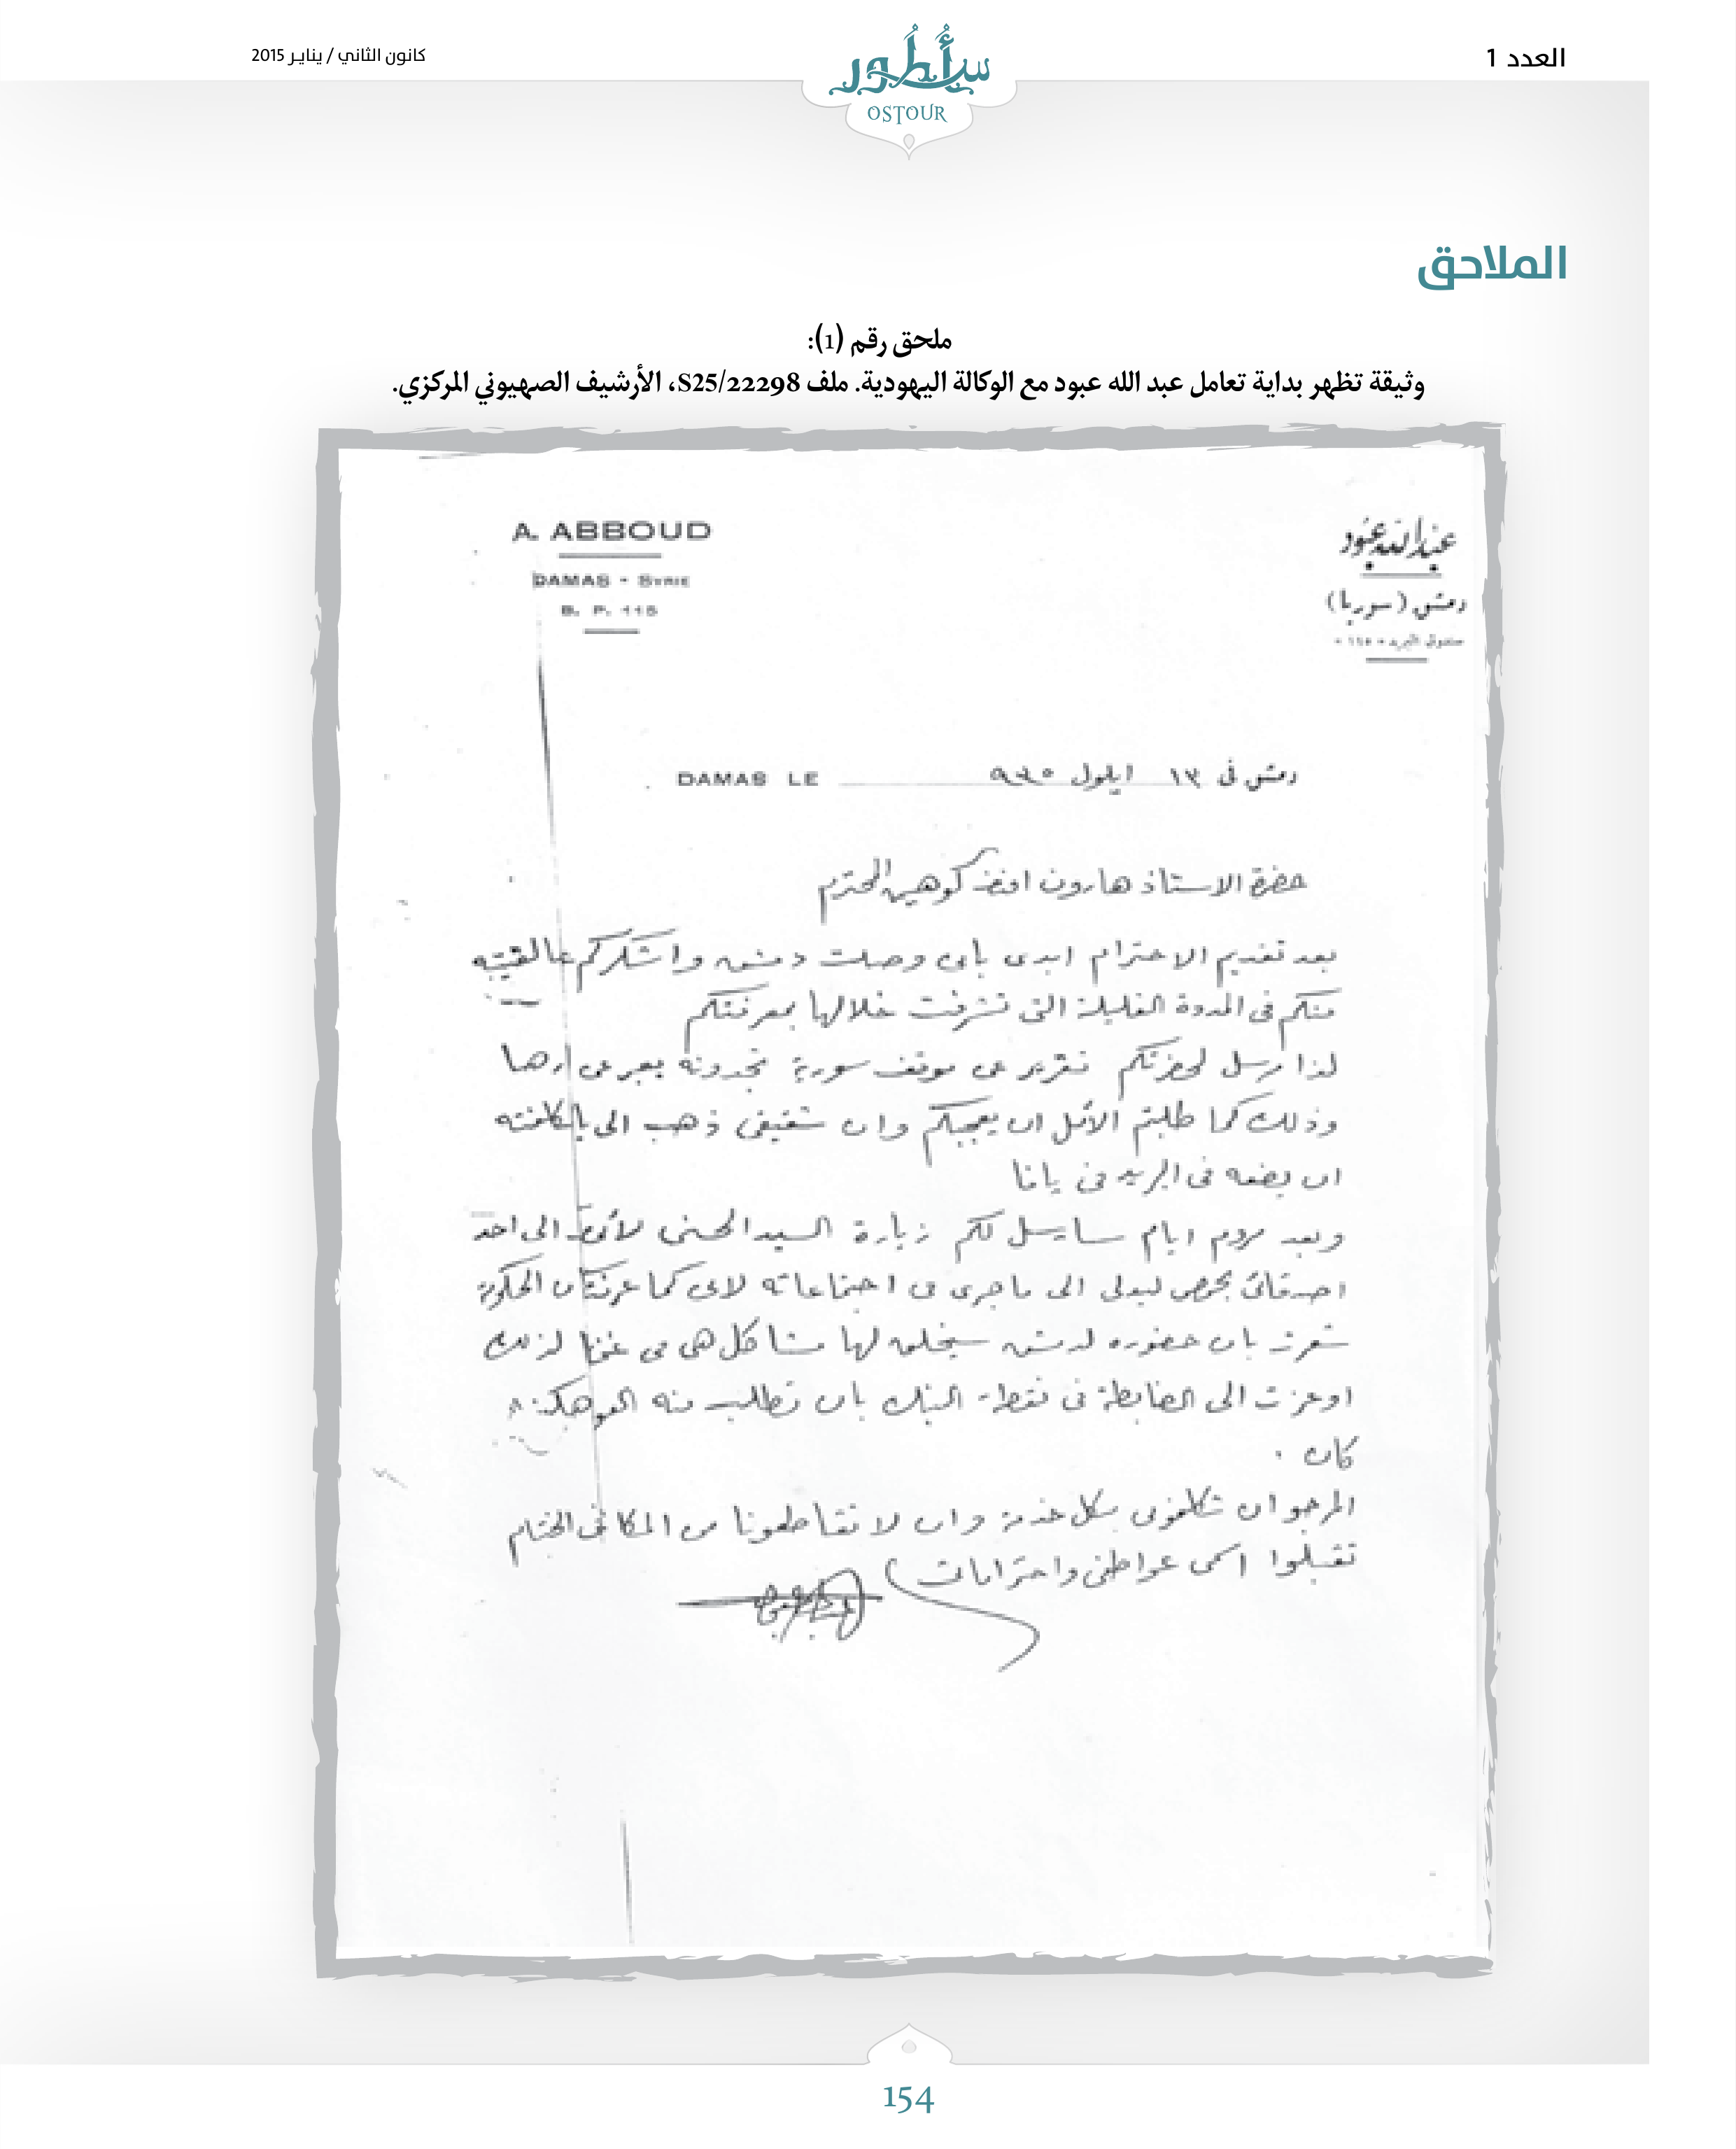 العدد 1
أسطور
OSTOUR
كانون الثاني / يناير 2015
الملاحق
ملحق رقم (1):
وثيقة تظهر بداية تعامل عبد الله عبود مع الوكالة اليهودية. ملف S25/22298، الأرشيف الصهيوني المركزي.
عبد الله عبود
دمشق (سوريا)
صندوق البريد ١١٥
A. ABBOUD
DAMAS - SYRIE
B. P. 115
دمشق في ١٣ ايلول ٩٣٥
DAMAS LE
حضرة الاستاذ هارون افندي كوهين المحترم
بعد تقديم الاحترام ابدي باني وصلت دمشق واشكركم عما لقيته
منكم في المدة القليلة التي تشرفت خلالها بمعرفتكم
لذا ارسل لحضرتكم تقرير عن موقف سورية تجدونه
وذلك كما طلبتم الأمل ان يعجبكم وان شقيقي ذهب الى كلفته
ان يضعه في البريد في يافا
وبعد ايام سارسل لكم زيارة السيد الحسني الى احد
اصدقائي بحمص ليدلي الى ما جرى في اجتماعاته لاني كما عرفت ان الحكومة
شعرت بان حضوره لدمشق سيخلق لها مشاكل هي في غنى لذلك
اوعزت الى الضابطة في نقطة البنك بان تطلب منه وهكذا
كان .
المرجو ان تكلفوني بكل خدمة وان لا تقاطعونا من وفي الختام
تقبلوا اسمى عواطفي واحتراماتي
154